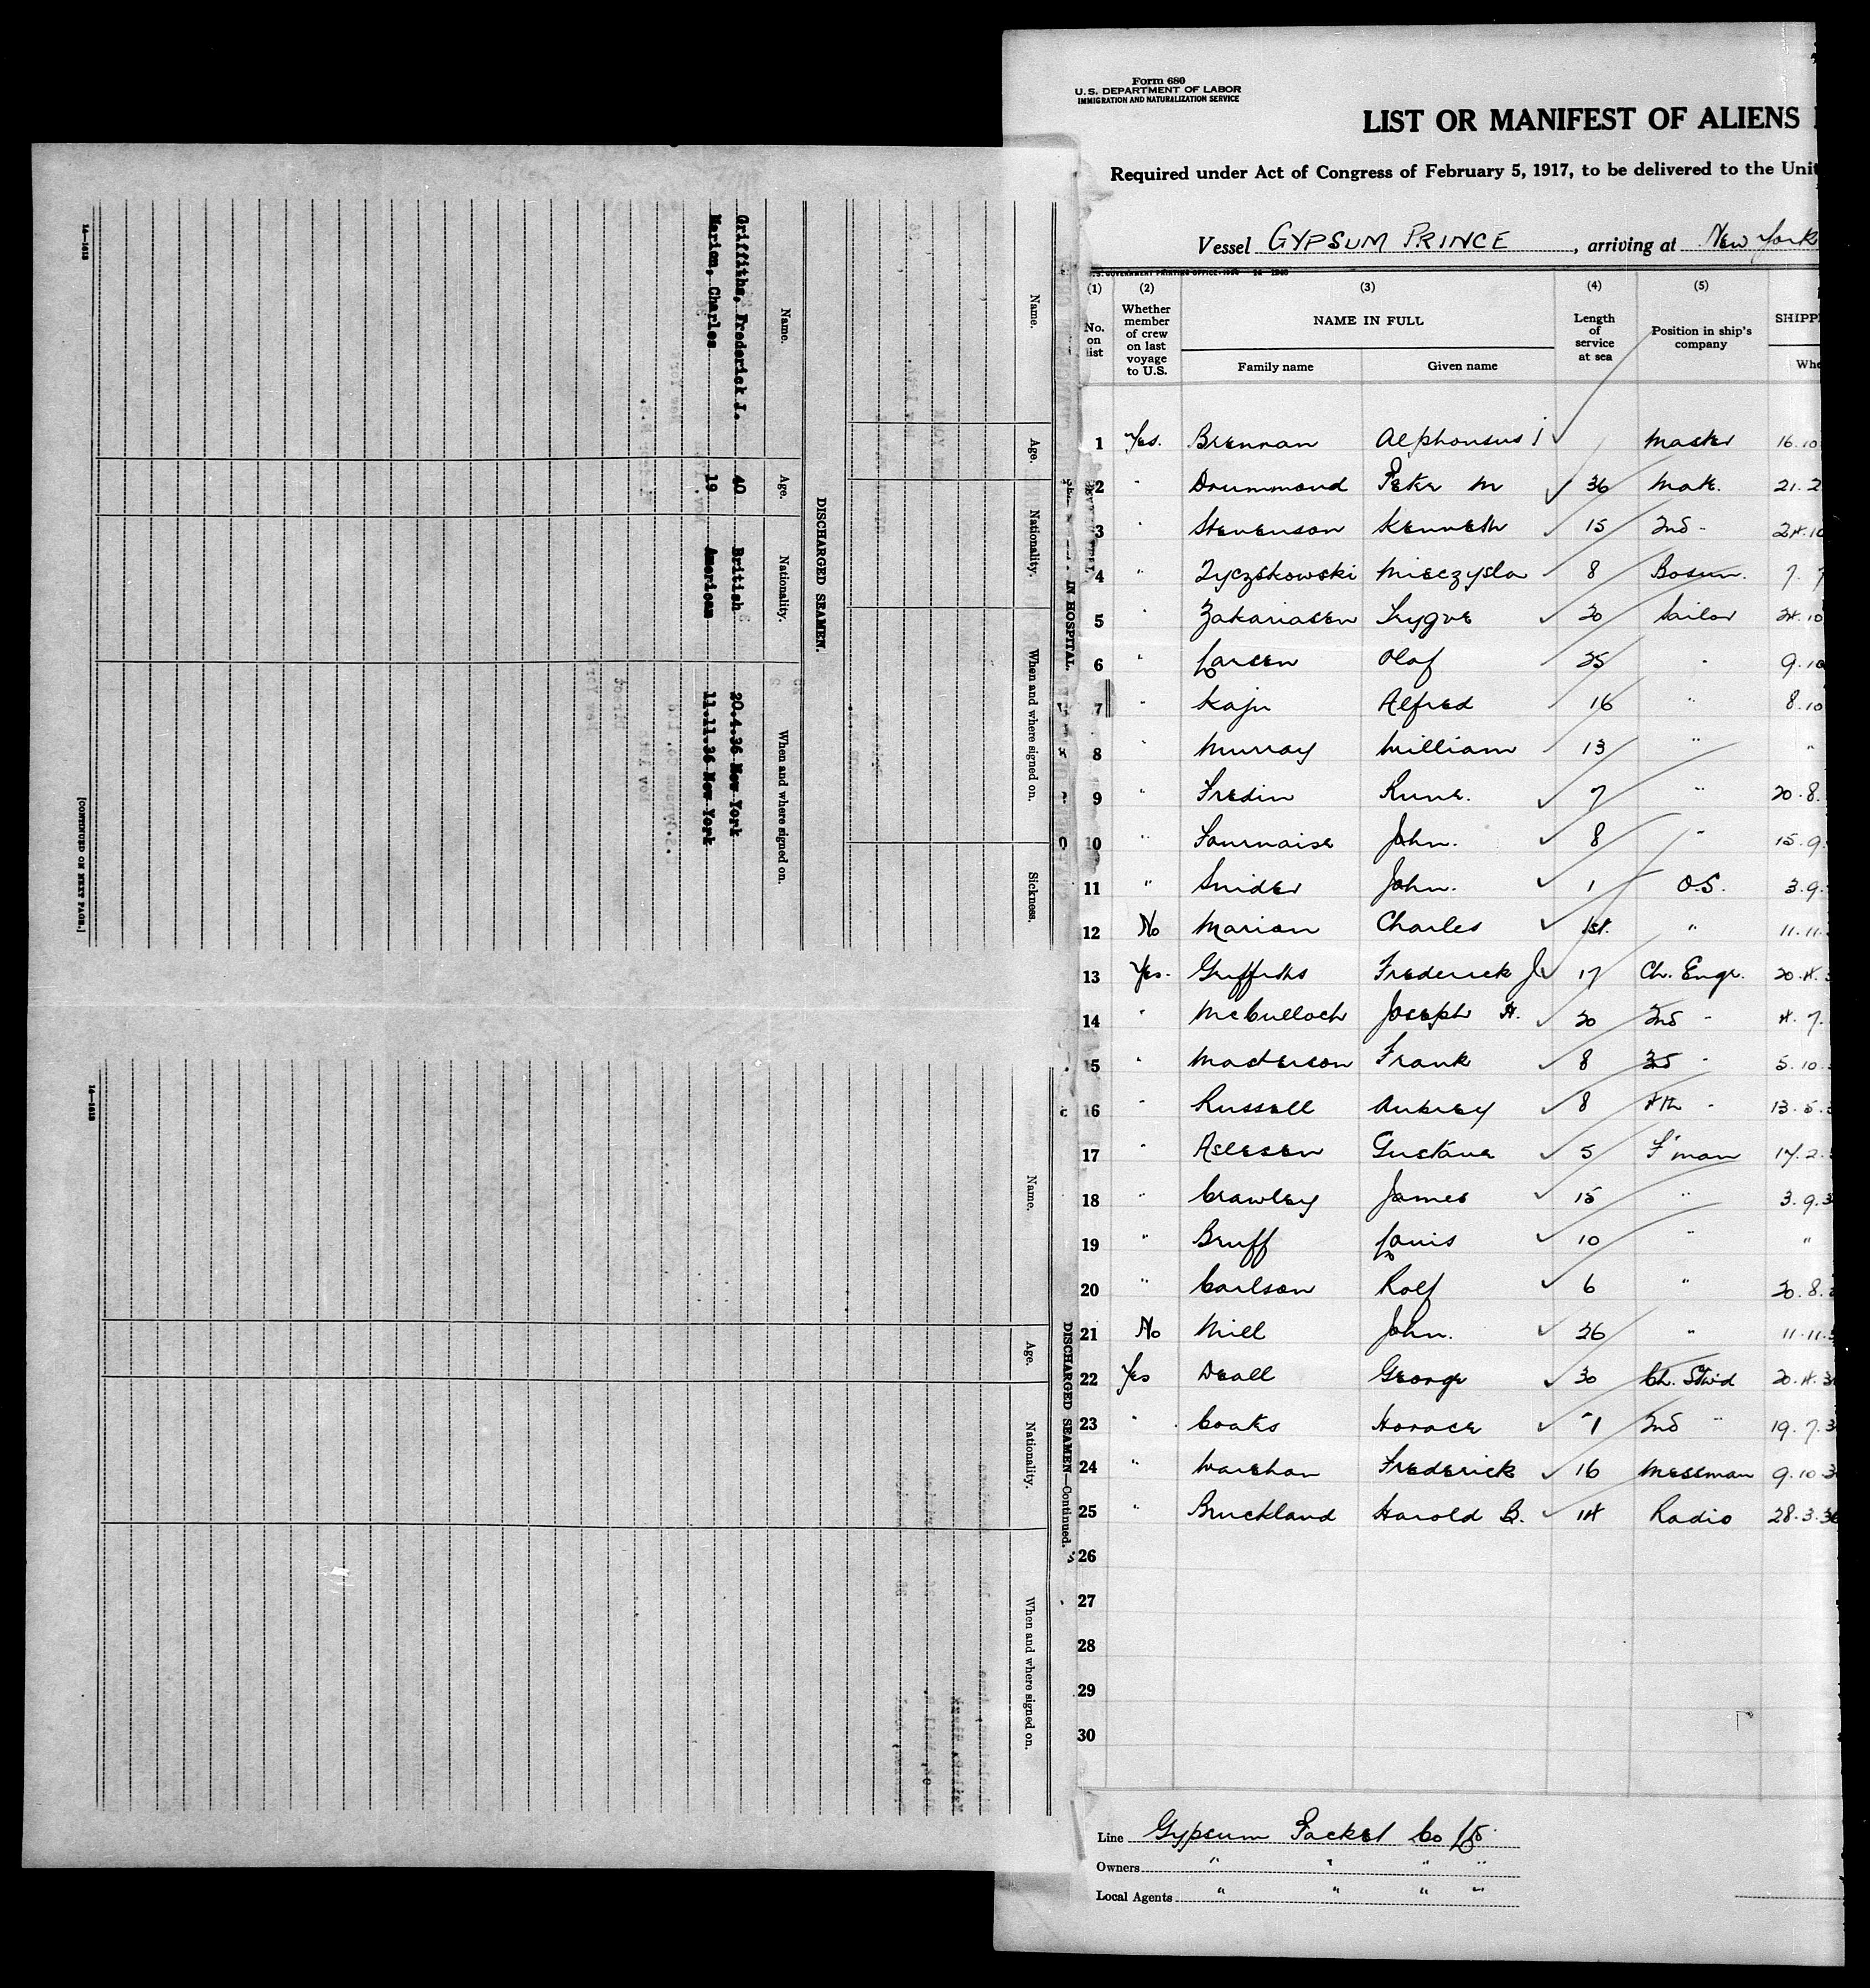 Form 680
U.S. DEPARTMENT OF LABOR
IMMIGRATION AND NATURALIZATION SERVICE
LIST OR MANIFEST OF ALIENS
Required under Act of Congress of February 5, 1917, to be delivered to the Unit
Vessel GYPSUM PRINCE, arriving at New York
(1) (2) (3) (4) (5)
No. on list Whether member of crew on last voyage to U.S. NAME IN FULL Length of service at sea Position in ship's company SHIPP
Family name Given name Whe
1 Yes. Brennan Alphonsus J Master 16.10
2 " Drummond Peter M 36 Mate. 21.2
3 " Stevenson Kenneth 15 2nd - 24.10
4 " Zyczskowski Mieczysla 8 Bosun. 7.7
5 " Zakariasen Trygve 20 Sailor 24.10
6 " Larsen Olaf 25 " 9.10
7 " Kaju Alfred 16 " 8.10
8 " Murray William 13 " "
9 " Fredin Rune. 7 " 20.8.
10 " Fournaise John. 8 " 15.9.
11 " Snider John. 1 O.S. 3.9.
12 No Marion Charles 1st. " 11.11.
13 Yes. Griffiths Frederick J 17 Ch. Engr. 20.4.
14 " McCulloch Joseph A. 20 2nd - 4.7.
15 " Masterson Frank 8 3d - 5.10.
16 " Russell Aubrey 8 4th - 13.5.
17 " Aslesen Gustave 5 F'man 17.2.
18 " Crawley James 15 " 3.9.3
19 " Bruff Louis 10 " "
20 " Carlson Rolf 6 " 20.8.
21 No Mill John. 26 " 11.11.
22 Yes Deall George 30 Ch. Stwd 20.4.3
23 " Coaks Horace 1 2nd " 19.7.3
24 " Warehan Frederick 16 Messman 9.10.3
25 " Bruckland Harold B. 14 Radio 28.3.36
26
27
28
29
30
Line Gypsum Packet Co Ld.
Owners " " " "
Local Agents " " " "
IN HOSPITAL.
Name. Age. Nationality. When and where signed on. Sickness.
DISCHARGED SEAMEN.
Name. Age. Nationality. When and where signed on.
Griffiths, Frederick J. 40 British 20.4.36 New York
Marion, Charles 19 American 11.11.36 New York
14—1618 [CONTINUED ON NEXT PAGE.]
DISCHARGED SEAMEN—Continued.
Name. Age. Nationality. When and where signed on.
14—1618